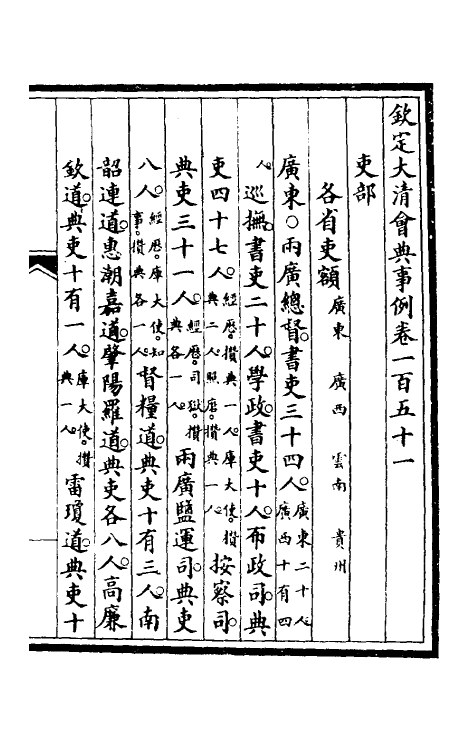 欽定大清會典事例卷一百五十一
吏部
各省吏額廣東 廣西 雲南 貴州
廣東○兩廣總督。書吏三十四人。廣東二十人。廣西十有四
人。巡撫。書吏二十人。學政。書吏十人。布政司。典
吏四十七人。經歷。攢典一人。庫大使。攢典二人。照磨。攢典一人。按察司。
典吏三十一人。經歷。司獄。攢典各一人。兩廣鹽運司。典吏
八人。經歷。庫大使。知事。攢典各一人。督糧道。典吏十有三人。南
韶連道。惠潮嘉道。肇陽羅道。典吏各八人。高廉
欽道。典吏十有一人。庫大使。攢典一人。雷瓊道。典吏十